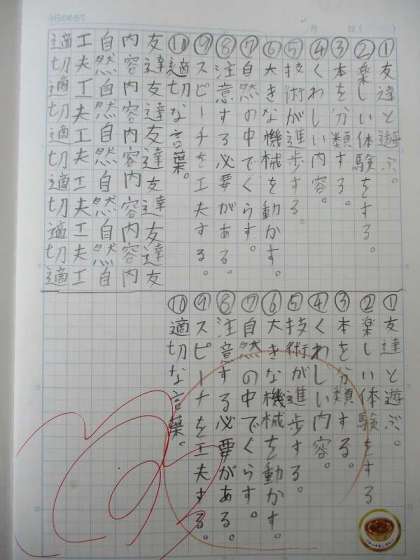 ①友達と遊ぶ。
②楽しい体験をする。
③本を分類する。
④くわしい内容。
⑤技術が進歩する。
⑥大きな機械を動かす。
⑦自然の中でくらす。
⑧注意する必要がある。
⑨スピーチを工夫する。
⑩適切な言葉。
友達友達友達友達友達友
内容内容内容内容内容内
自然自然自然自然自然自
工夫工夫工夫工夫工夫工
適切適切適切適切適切適
①友達と遊ぶ。
②楽しい体験をする
③本を分類する。
④くわしい内容。
⑤技術が進歩する。
⑥大きな機械を動かす。
⑦自然の中でくらす。
⑧注意する必要がある。
⑨スピーチを工夫する。
⑩適切な言葉。